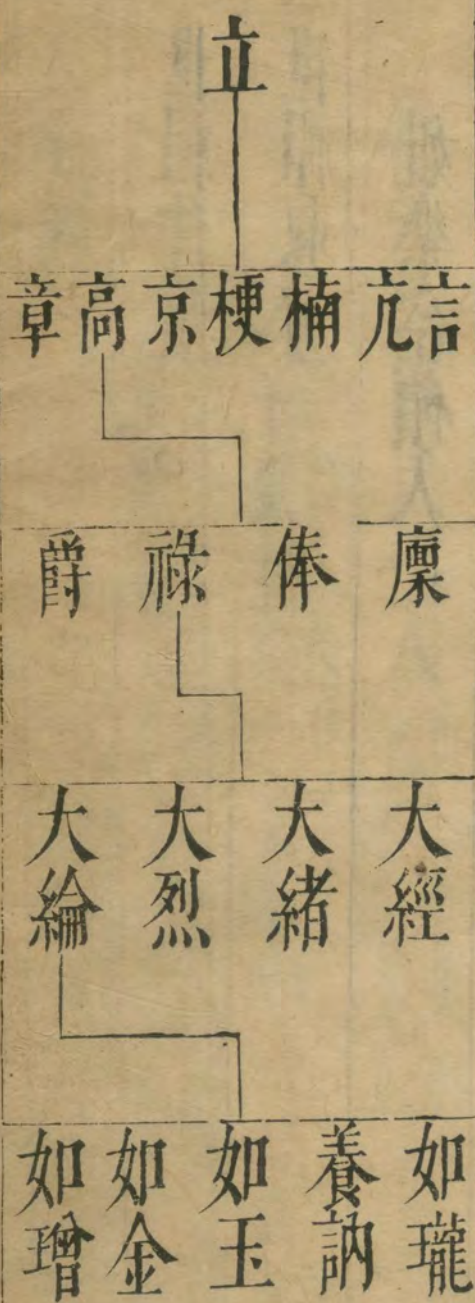 立
言 亢 楠 梗 京 高 章
廩 俸 祿 爵
大經 大緒 大烈 大綸
如瓏 養訥 如玉 如金 如璔